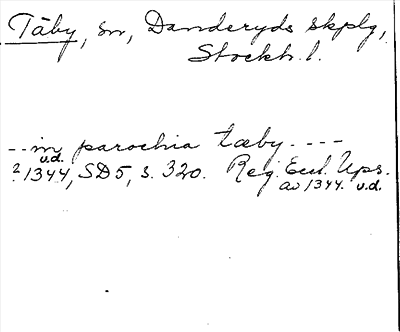 Täby, sn, Danderyds skplg,
Stockh. l.
-- in parochia tæby ----
u.d.
? 1344, SD5, s. 320. Reg. Eccl. Ups.
av 1344. u.d.